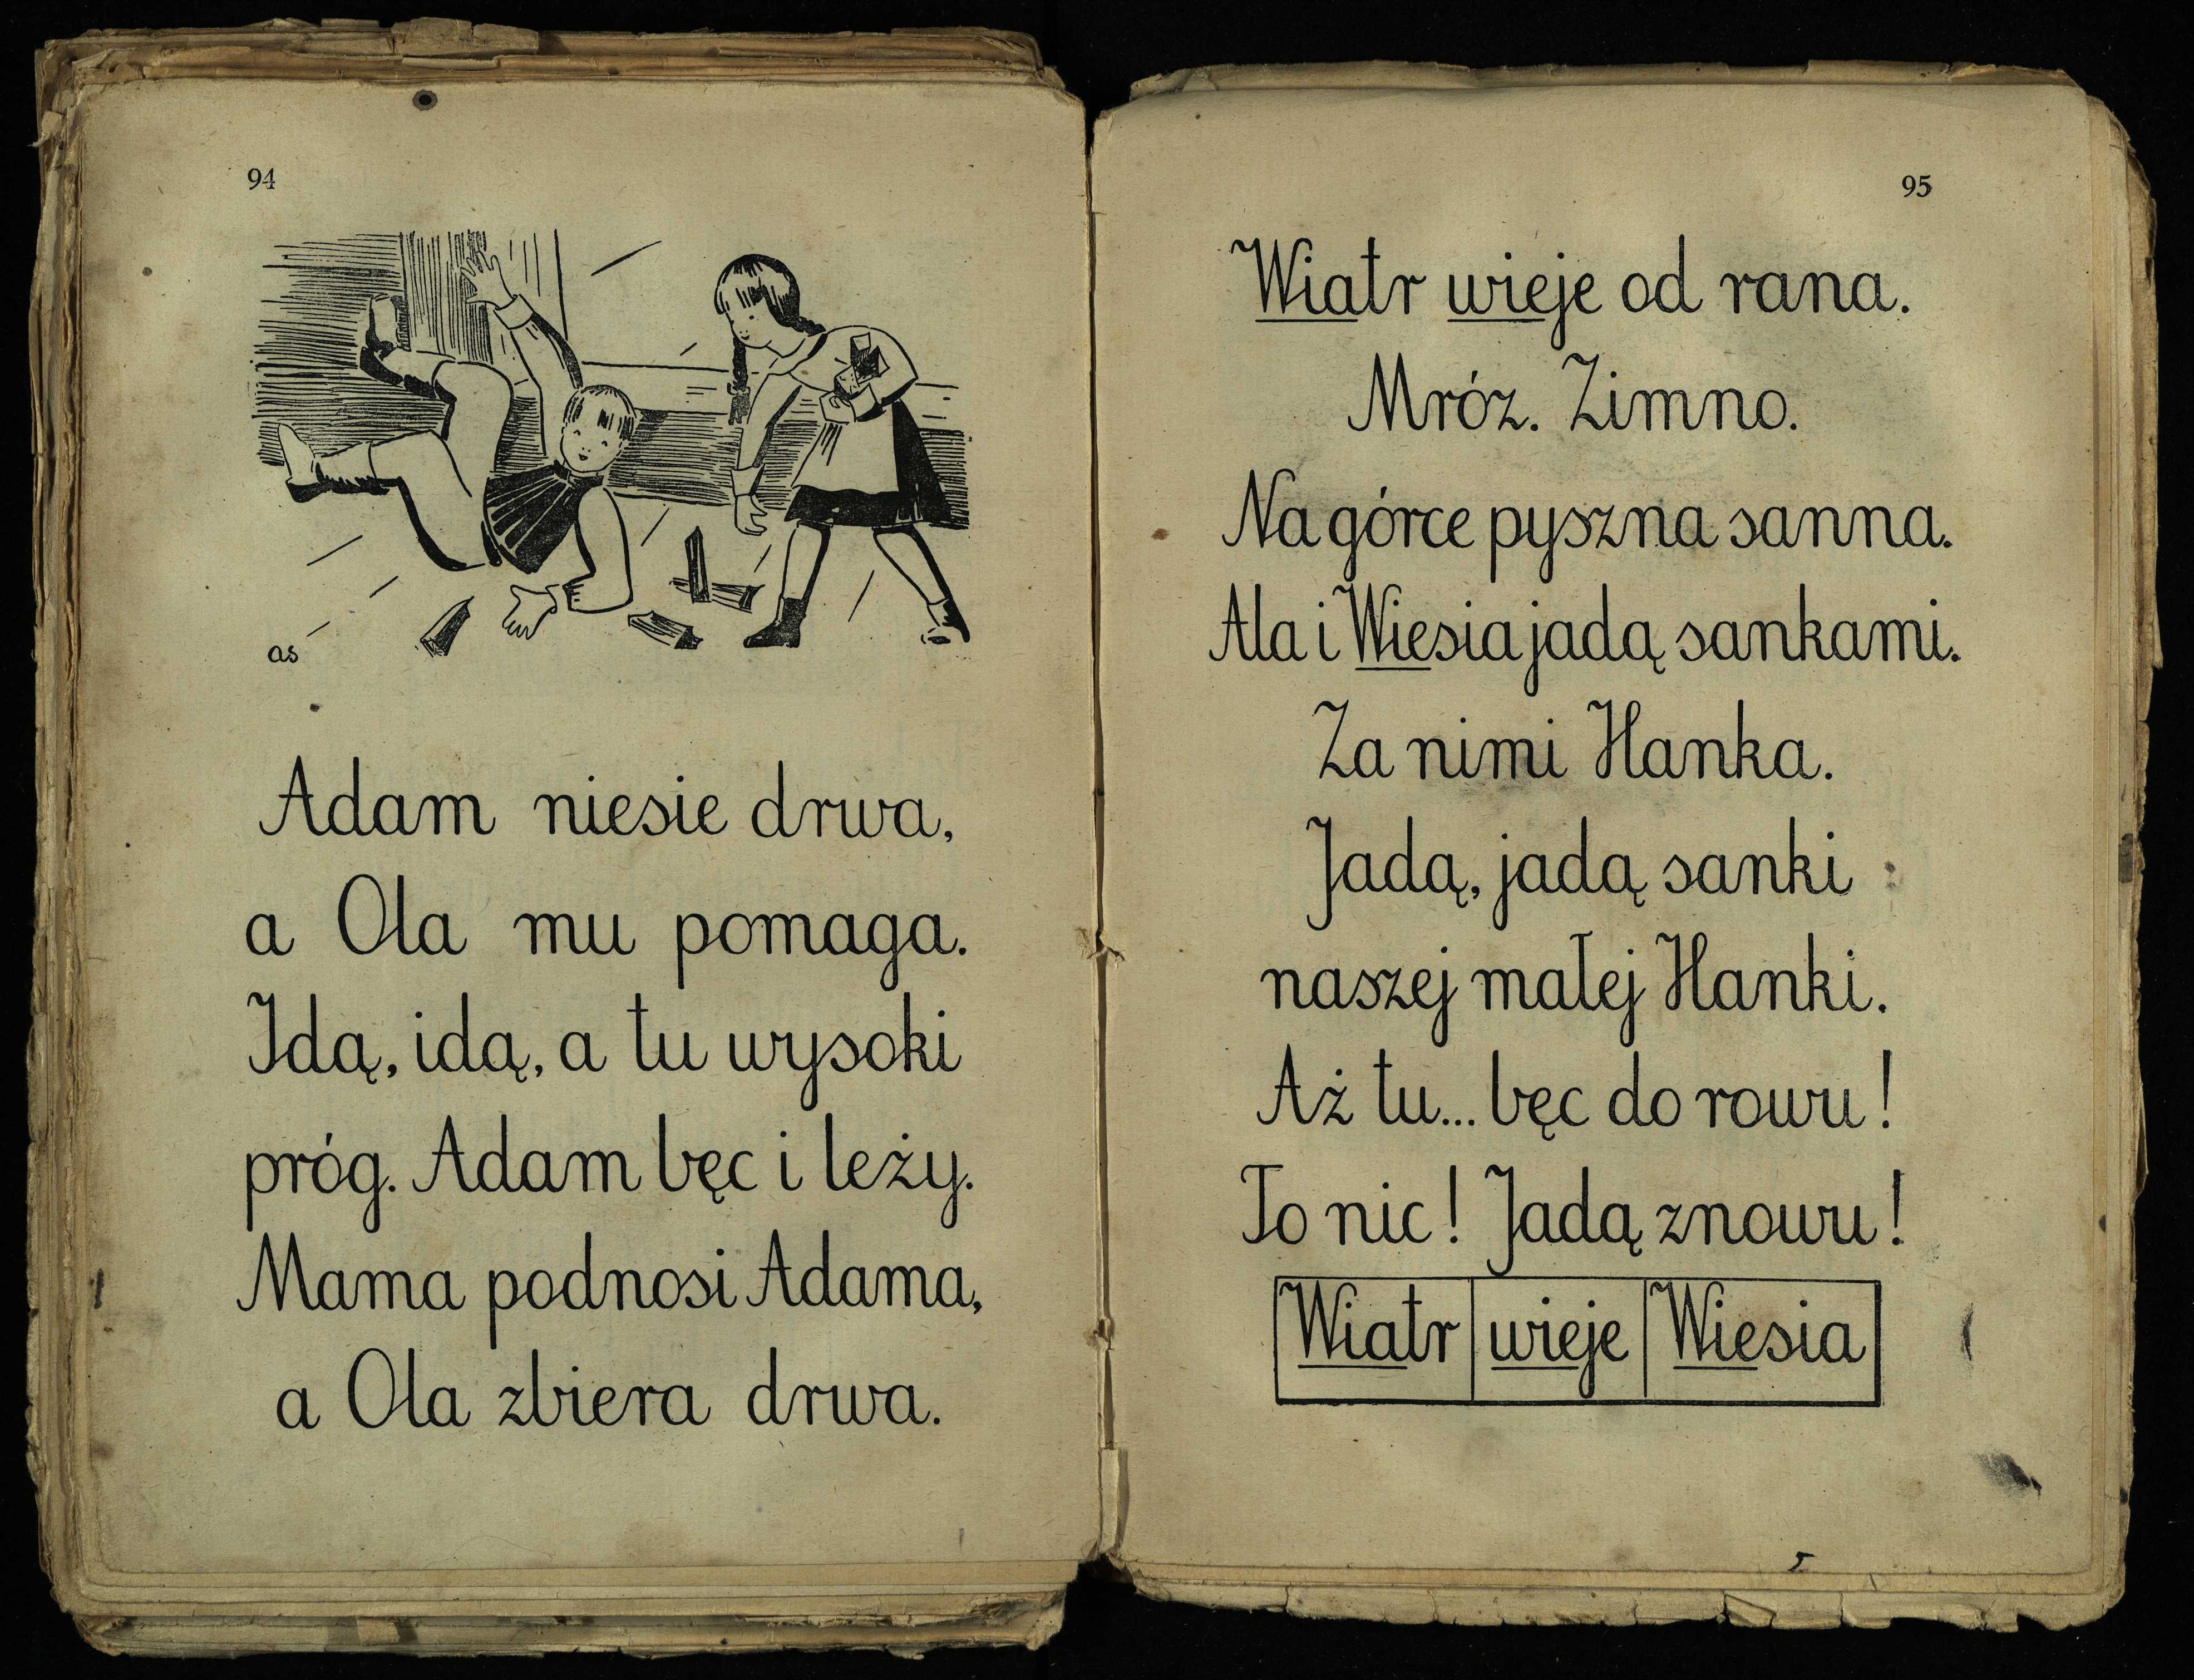 94
as
Adam niesie drwa,
a Ola mu pomaga.
Idą, idą, a tu wysoki
próg. Adam bęc i leży.
Mama podnosi Adama,
a Ola zbiera drwa.
95
Wiatr wieje od rana.
Mróz. Zimno.
Na górce pyszna sanna.
Ala i Wiesia jadą sankami.
Za nimi Hanka.
Jadą, jadą sanki
naszej małej Hanki.
Aż tu... bęc do rowu!
To nic! Jadą znowu!
Wiatr wieje Wiesia